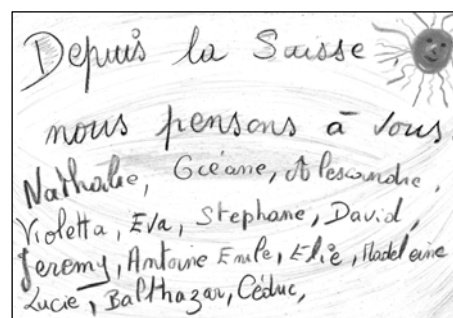 Depuis la Suisse
nous pensons à vous
Nathalie, Océane, Alescandre,
Violetta, Eva, Stephane, David,
Jeremy, Antoine Emile, Elie, Madeleine
Lucie, Balthazar, Céduc,